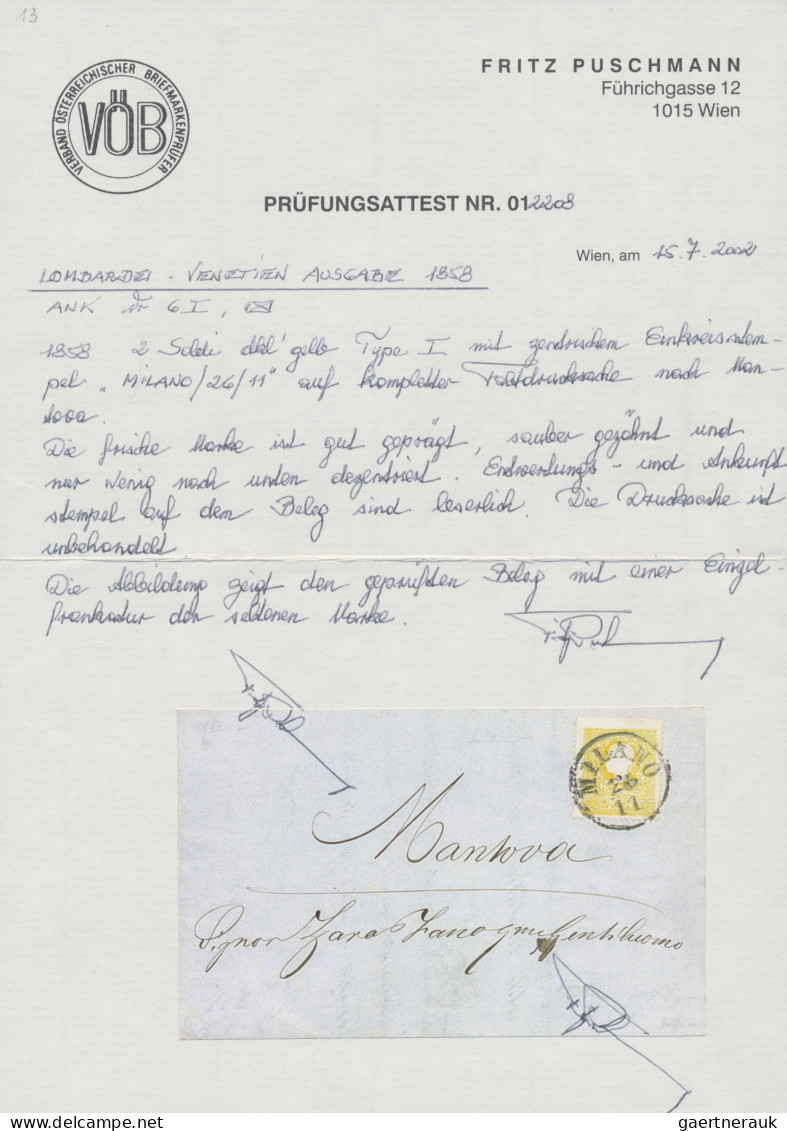 13
VERBAND ÖSTERREICHISCHER BRIEFMARKENPRÜFER
VÖB
FRITZ PUSCHMANN
Führichgasse 12
1015 Wien
PRÜFUNGSATTEST NR. 012208
Wien, am 15.7.2002
LOMBARDEI - VENETIEN AUSGABE 1858
ANK Nr 6 I,
1858 2 Soldi dkl' gelb Type I mit zentrischem Einkreisstem-
pel "MILANO/26/11" auf kompletter Faltdrucksache nach Man-
tova.
Die frische Marke ist gut geprägt, sauber gezähnt und
nur wenig nach unten dezentriert. Entwertungs- und Ankunft
stempel auf dem Beleg sind leserlich. Die Drucksache ist
unbehandelt.
Die Abbildung zeigt den geprüften Beleg mit einer Einzel-
frankatur der seltenen Marke.
MILANO
26
11
Mantova
Signor Zara Zano Gentiluomo
gaertnerauk